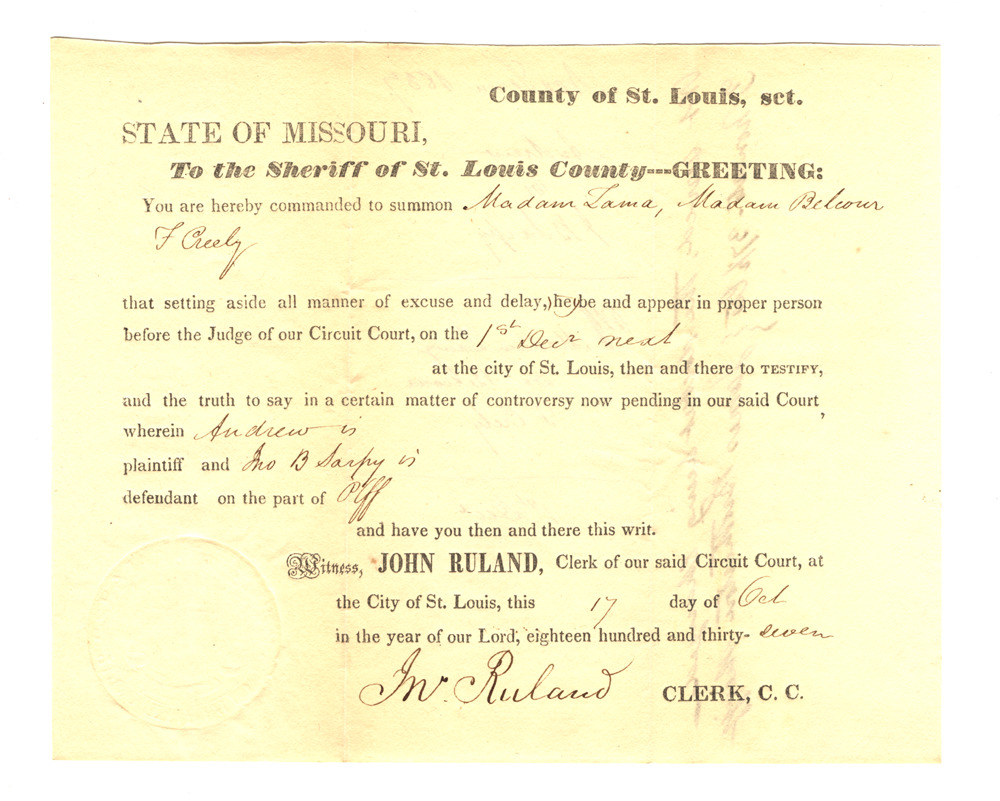 County of St. Louis, sct.
STATE OF MISSOURI,
To the Sheriff of St. Louis County---GREETING:
You are hereby commanded to summon Madam Lama, Madam Belcour
F Creely
that setting aside all manner of excuse and delay, they be and appear in proper person
before the Judge of our Circuit Court, on the 1st Decr next
at the city of St. Louis, then and there to TESTIFY,
and the truth to say in a certain matter of controversy now pending in our said Court,
wherein Andrew is
plaintiff and Jno B Sarpy is
defendant on the part of Plff
and have you then and there this writ.
Witness, JOHN RULAND, Clerk of our said Circuit Court, at
the City of St. Louis, this 17 day of Oct
in the year of our Lord, eighteen hundred and thirty- seven
Jno. Ruland CLERK, C. C.